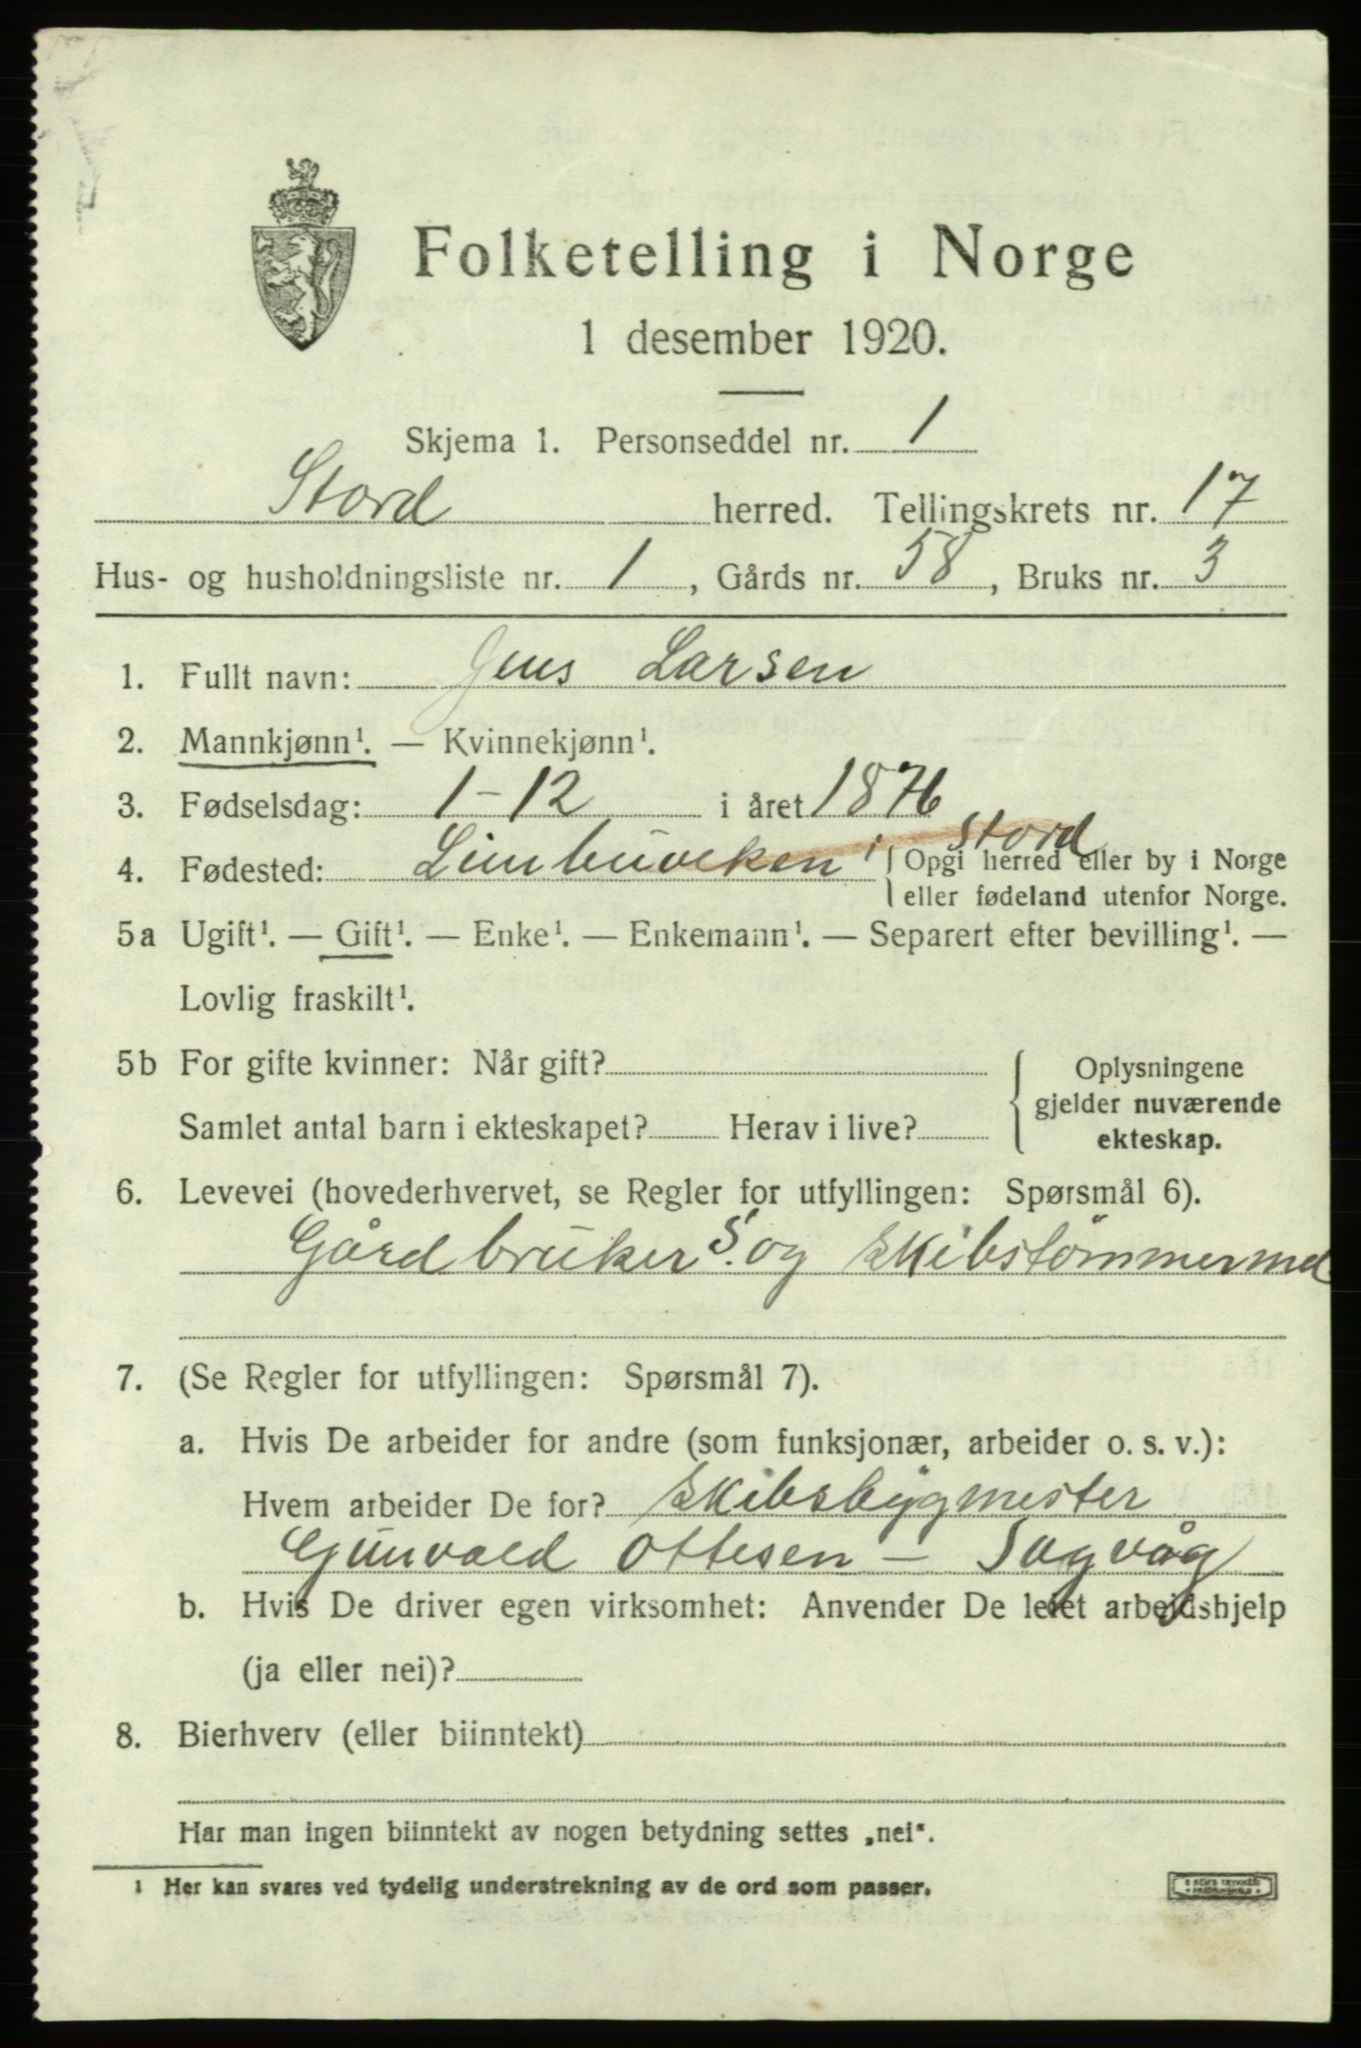 Folketelling i Norge
1 desember 1920.
Skjema 1. Personseddel nr. 1
Stord herred. Tellingskrets nr. 17
Hus- og husholdningsliste nr. 1, Gårds nr. 58, Bruks nr. 3
1. Fullt navn: Jens Larsen
2. Mannkjønn¹. — Kvinnekjønn¹.
3. Fødselsdag: 1-12 i året 1876
4. Fødested: i Stord
Opgi herred eller by i Norge
eller fødeland utenfor Norge.
5a Ugift¹. — Gift¹. — Enke¹. — Enkemann¹. — Separert efter bevilling¹. —
Lovlig fraskilt¹.
5b For gifte kvinner: Når gift?
Samlet antal barn i ekteskapet? Herav i live?
Oplysningene
gjelder nuværende
ekteskap.
6. Levevei (hovederhvervet, se Regler for utfyllingen: Spørsmål 6).
Gårdbruker S. og skibstømmermd
7. (Se Regler for utfyllingen: Spørsmål 7).
a. Hvis De arbeider for andre (som funksjonær, arbeider o. s. v.):
Hvem arbeider De for? Skibsbygmester
Gunvald Ottesen — Sagvåg
b. Hvis De driver egen virksomhet: Anvender De leiet arbeidshjelp
(ja eller nei)?
8. Bierhverv (eller biinntekt)
Har man ingen biinntekt av nogen betydning settes „nei".
1 Her kan svares ved tydelig understrekning av de ord som passer.